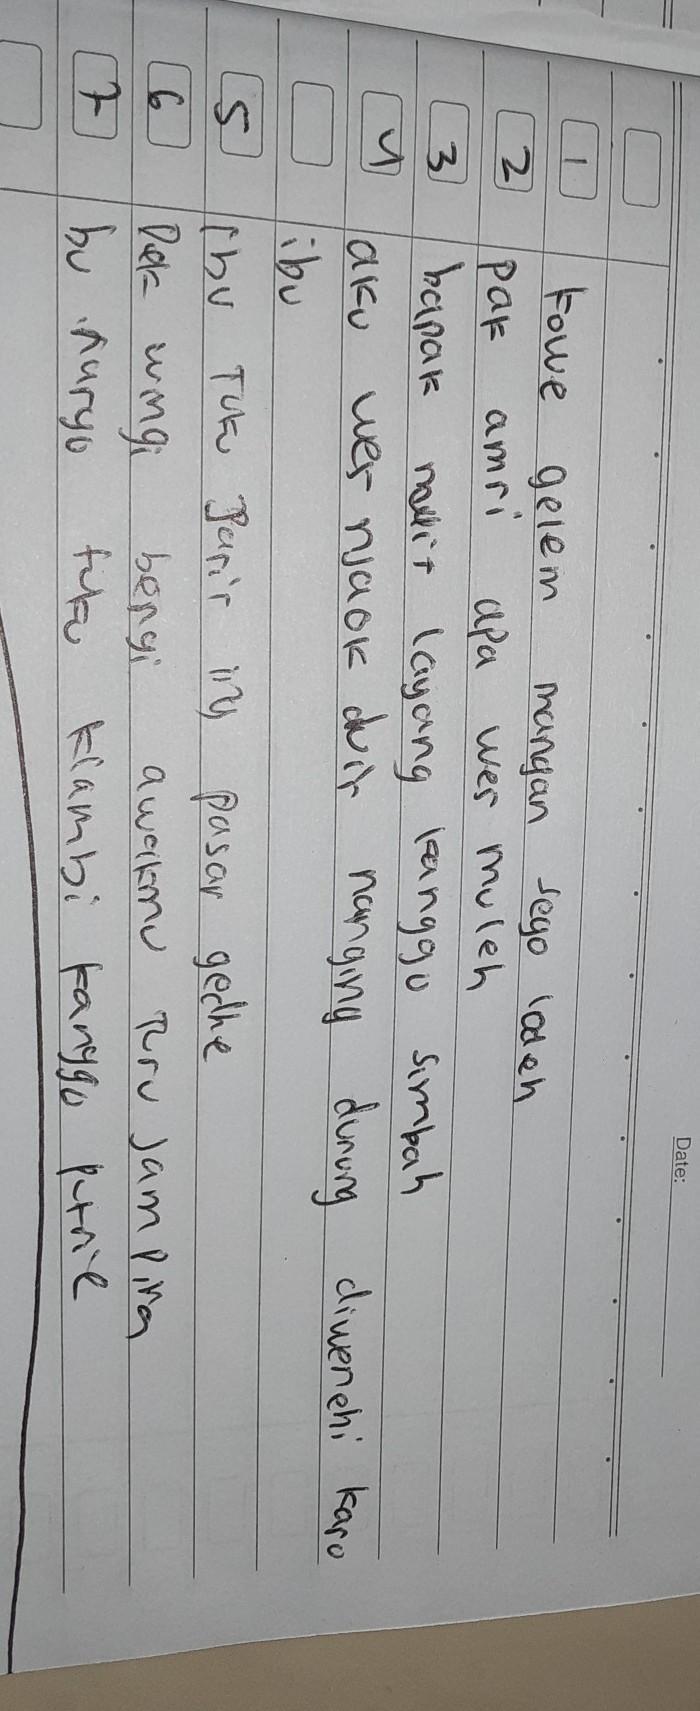 Date:
1 kowe gelem mangan sego lodeh
2 pak amri apa wes muleh
3 bapak nulit layang kanggo simbah
4 aku wes njaok duit nanging durung diwenehi karo
ibu
5 Ibu Tuku Panir ing pasar gedhe
6 Dek wingi bengi awakmu Turu Jam Pira
7 bu naryo tuku klambi kanggo putrie